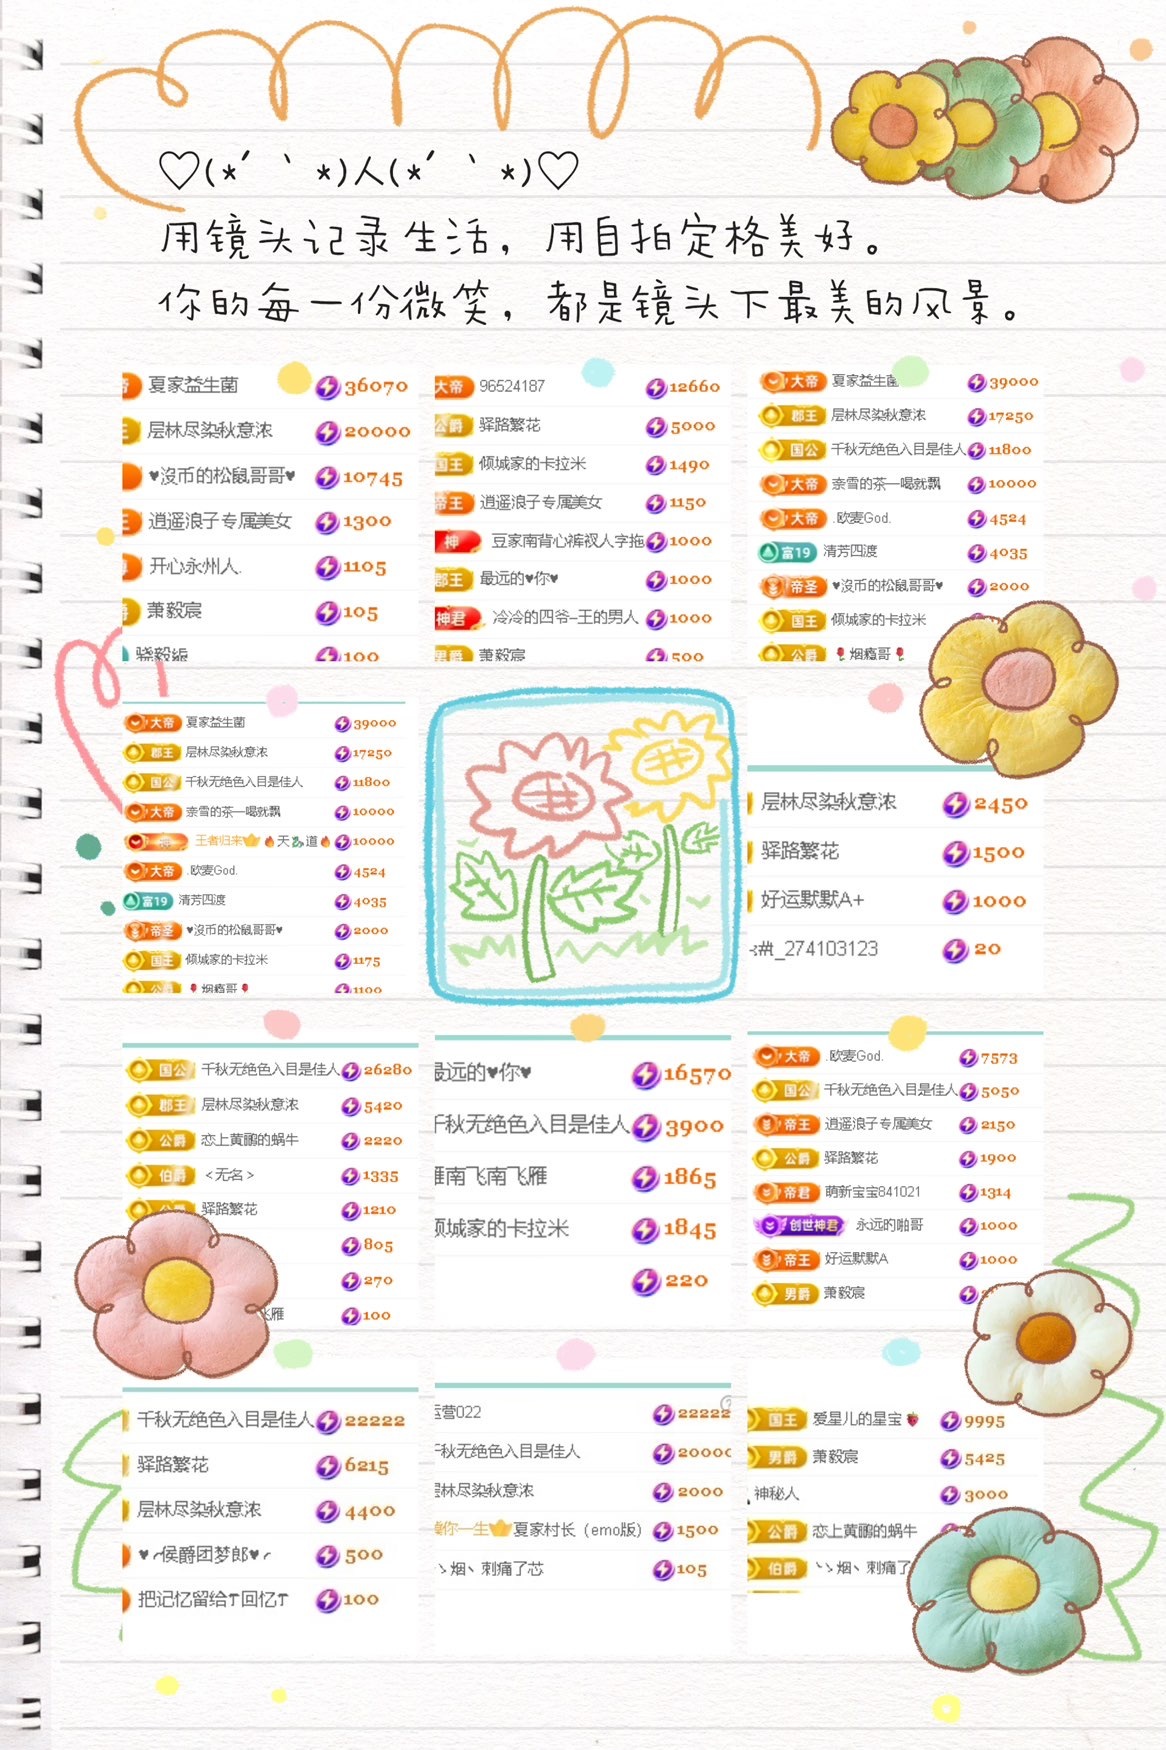 ♡(*´ ` *)人(*´ ` *)♡
用镜头记录生活，用自拍定格美好。
你的每一份微笑，都是镜头下最美的风景。
夏家益生菌 36070
层林尽染秋意浓 20000
♥沒币的松鼠哥哥♥ 10745
逍遥浪子专属美女 1300
开心永州人. 1105
萧毅宸 105
100
大帝 96524187 12660
公爵 驿路繁花 5000
国王 倾城家的卡拉米 1490
帝王 逍遥浪子专属美女 1150
神 豆家南背心裤衩人字拖 1000
郡王 最远的♥你♥ 1000
神君 冷冷的四爷–王的男人 1000
男爵 萧毅宸 500
大帝 夏家益生菌 39000
郡王 层林尽染秋意浓 17250
国公 千秋无绝色入目是佳人 11800
大帝 奈雪的茶—喝就飘 10000
大帝 .欧麦God. 4524
富19 清芳四渡 4035
帝圣 ♥沒币的松鼠哥哥♥ 2000
国王 倾城家的卡拉米
公爵 🌹烟瘾哥🌹
大帝 夏家益生菌 39000
郡王 层林尽染秋意浓 17250
国公 千秋无绝色入目是佳人 11800
大帝 奈雪的茶—喝就飘 10000
王者归来👑🔥天🐉道🔥 10000
大帝 .欧麦God. 4524
富19 清芳四渡 4035
帝圣 ♥沒币的松鼠哥哥♥ 2000
国王 倾城家的卡拉米 1175
公爵 🌹烟瘾哥🌹 1100
层林尽染秋意浓 2450
驿路繁花 1500
好运默默A+ 1000
#t_274103123 20
国公 千秋无绝色入目是佳人 26280
郡王 层林尽染秋意浓 5420
公爵 恋上黄鹂的蜗牛 2220
伯爵 <无名> 1335
公爵 驿路繁花 1210
805
270
飞雁 100
最远的♥你♥ 16570
千秋无绝色入目是佳人 3900
雁南飞南飞雁 1865
倾城家的卡拉米 1845
220
大帝 .欧麦God. 7573
国公 千秋无绝色入目是佳人 5050
帝王 逍遥浪子专属美女 2150
公爵 驿路繁花 1900
帝君 萌新宝宝841021 1314
创世神君 永远的啪哥 1000
帝王 好运默默A 1000
男爵 萧毅宸
千秋无绝色入目是佳人 22222
驿路繁花 6215
层林尽染秋意浓 4400
♥╭侯爵团梦郎♥╭ 500
把记忆留给干回忆干 100
运营022 22222
千秋无绝色入目是佳人 20000
层林尽染秋意浓 2000
你一生👑夏家村长（emo版） 1500
烟、刺痛了芯 105
国王 爱星儿的星宝🍓 9995
男爵 萧毅宸 5425
神秘人 3000
公爵 恋上黄鹂的蜗牛
伯爵 烟、刺痛了